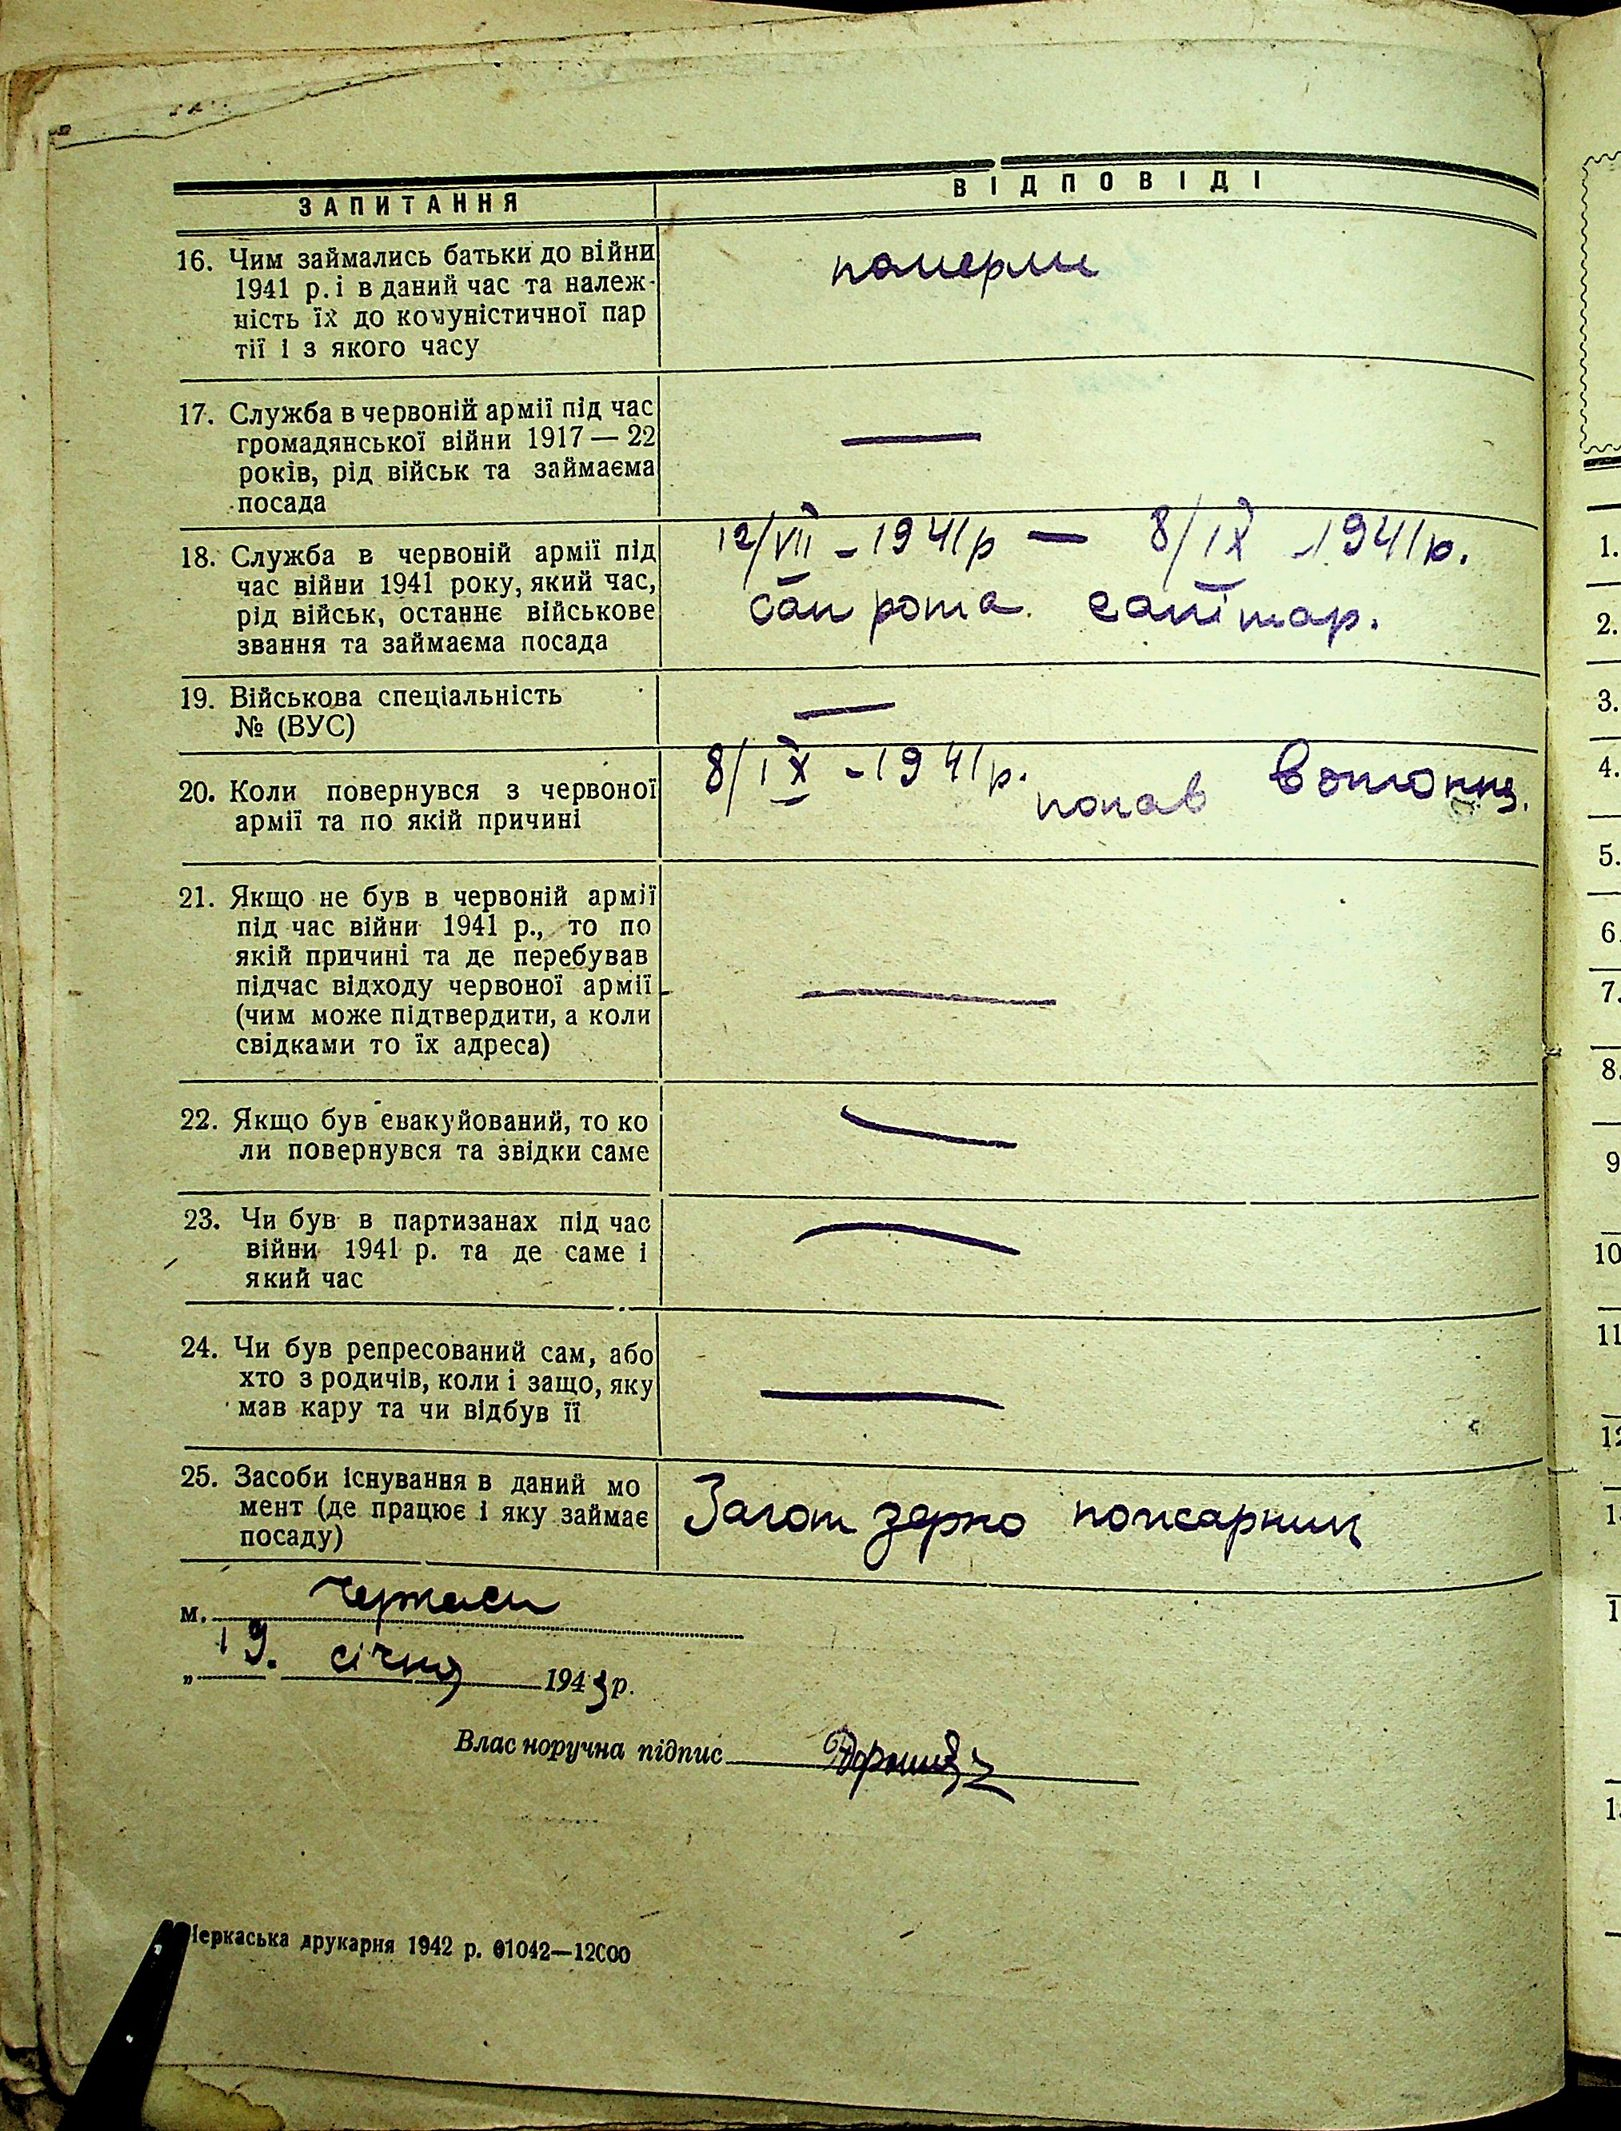 ЗАПИТАННЯ
ВІДПОВІДІ
16. Чим займались батьки до війни
1941 р. і в даний час та належ-
ність їх до комуністичної пар
тії і з якого часу
померли
17. Служба в червоній армії під час
громадянської війни 1917 — 22
років, рід військ та займаєма
посада
—
18. Служба в червоній армії під
час війни 1941 року, який час,
рід військ, останнє військове
звання та займаєма посада
12/VII - 1941р — 8/IX - 1941р.
Сан рота. санітар.
19. Військова спеціальність
№ (ВУС)
—
20. Коли повернувся з червоної
армії та по якій причині
8/IX - 1941р. попав
21. Якщо не був в червоній армії
під час війни 1941 р., то по
якій причині та де перебував
підчас відходу червоної армії
(чим може підтвердити, а коли
свідками то їх адреса)
—
22. Якщо був евакуйований, то ко
ли повернувся та звідки саме
—
23. Чи був в партизанах під час
війни 1941 р. та де саме і
який час
—
24. Чи був репресований сам, або
хто з родичів, коли і защо, яку
мав кару та чи відбув її
—
25. Засоби існування в даний мо
мент (де працює і яку займає
посаду)
Загот зерно пожарник
м. Черкаси
„ 19. січня 1943 р.
Власноручна підпис
Черкаська друкарня 1942 р. 01042—12000
1.
2.
3.
4.
5.
6.
7.
8.
9
10
11